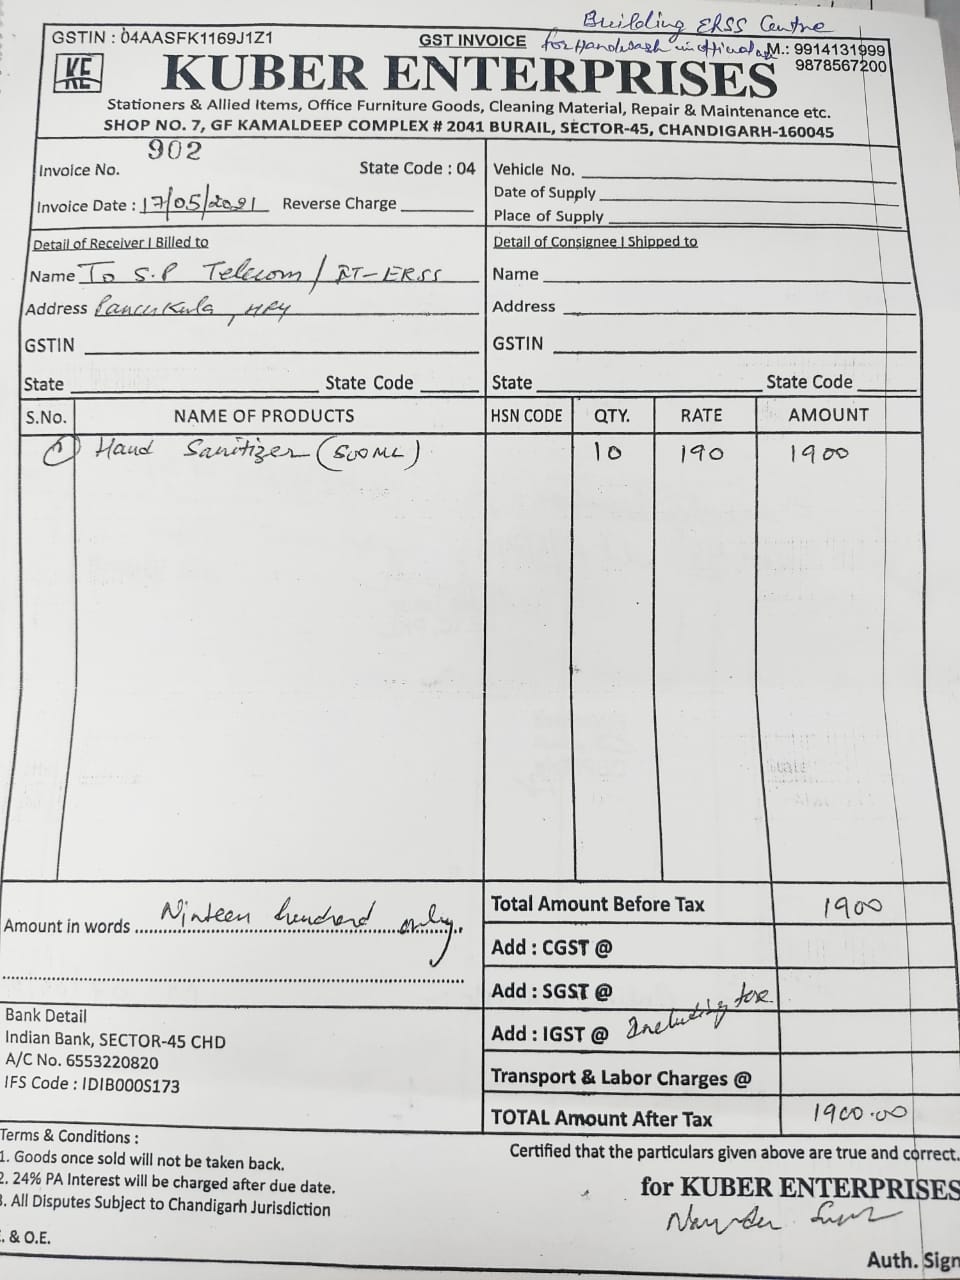 Building ERSS Centre
GSTIN : 04AASFK1169J1Z1
GST INVOICE
for Handwash in M.: 9914131999
9878567200
KE
KUBER ENTERPRISES
Stationers & Allied Items, Office Furniture Goods, Cleaning Material, Repair & Maintenance etc.
SHOP NO. 7, GF KAMALDEEP COMPLEX # 2041 BURAIL, SECTOR-45, CHANDIGARH-160045
Invoice No. 902 State Code : 04
Invoice Date : 17/05/2021 Reverse Charge
Vehicle No.
Date of Supply
Place of Supply
Detail of Receiver | Billed to
Name To S.P Telecom / IT-ERSS
Address Panckula, HRY
GSTIN
State State Code
Detail of Consignee | Shipped to
Name
Address
GSTIN
State State Code
S.No. NAME OF PRODUCTS HSN CODE QTY. RATE AMOUNT
1) Hand Sanitizer (500ML) 10 190 1900
Amount in words Ninteen hundred only
Total Amount Before Tax 1900
Add : CGST @
Add : SGST @
Add : IGST @ Including tax
Transport & Labor Charges @
TOTAL Amount After Tax 1900.00
Bank Detail
Indian Bank, SECTOR-45 CHD
A/C No. 6553220820
IFS Code : IDIB000S173
Terms & Conditions :
1. Goods once sold will not be taken back.
2. 24% PA Interest will be charged after due date.
3. All Disputes Subject to Chandigarh Jurisdiction
. & O.E.
Certified that the particulars given above are true and correct.
for KUBER ENTERPRISES
Auth. Sign